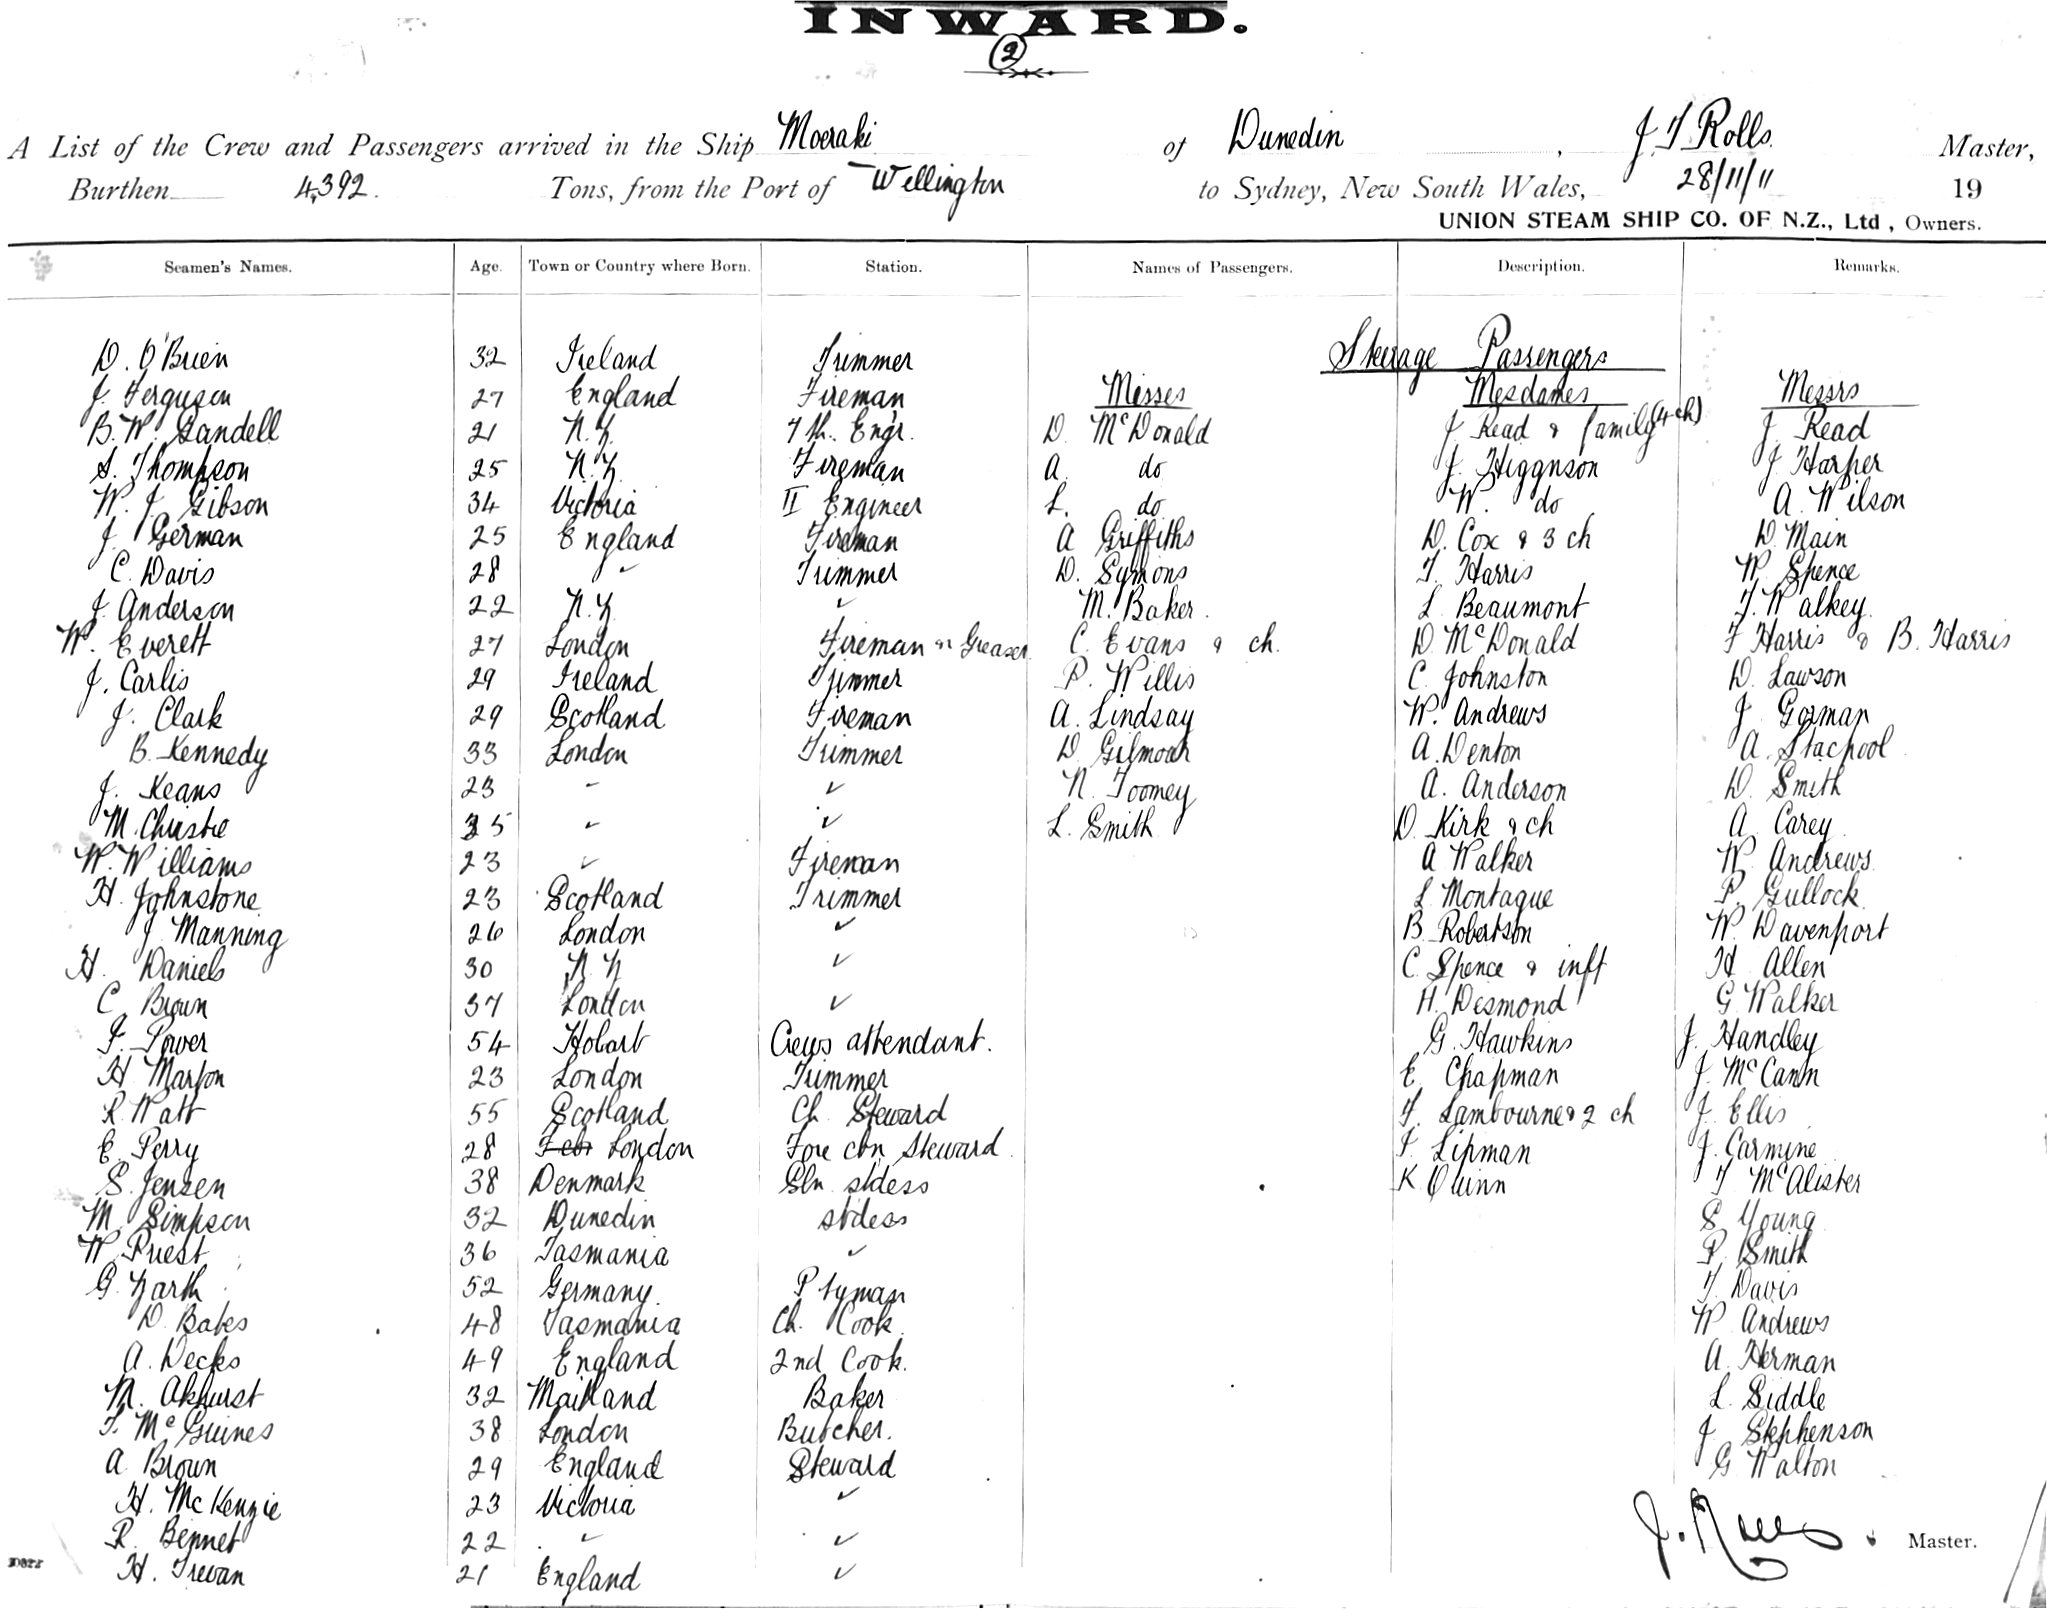 INWARD.
2
A List of the Crew and Passengers arrived in the Ship Moeraki of Dunedin, J. F. Rolls. Master,
Burthen 4,392. Tons, from the Port of Wellington to Sydney, New South Wales, 28/11/11 19
UNION STEAM SHIP CO. OF N.Z., Ltd, Owners.
Seamen's Names. Age. Town or Country where Born. Station. Names of Passengers. Description. Remarks.
Steerage Passengers
D. O'Brien 32 Ireland Trimmer
J. Ferguson 27 England Fireman Misses Mesdames Messrs
B. W. Gandell 21 N.Z. 7th. Engr. D. McDonald J Read & family (4 ch) J. Read
S. Thompson 25 N.Z. Fireman A. do J. Higgnson J Harper
W. J. Gibson 34 Victoria II Engineer L. do W. do A. Wilson
J German 25 England Fireman A Griffiths D. Cox & 3 ch D. Main
C. Davis 28 " Trimmer D. Symons T. Harris W Spence
J. Anderson 22 N.Z. " M. Baker. L Beaumont T. Walkey.
W. Everett 27 London Fireman & Greaser C. Evans & ch. D. McDonald F Harris & B. Harris
J. Carlis 29 Ireland Trimmer P. Willis C. Johnston D. Lawson
J. Clark 29 Scotland Fireman A. Lindsay W. Andrews J Gorman
B. Kennedy 33 London Trimmer D. Gilmour A. Denton A. Stacpool
J. Keans 23 " " N. Toomey A. Anderson D. Smith
M. Christie 35 " " L. Smith D. Kirk & ch A. Carey
W. Williams 23 " Fireman A Walker W Andrews
H. Johnstone 23 Scotland Trimmer L Montague P. Gullock
J Manning 26 London " B Robertson W. Davenport
H. Daniels 30 N.Z " C. Spence & inft H Allen
C Brown 37 London " H. Desmond G Walker
F. Power 54 Hobart Crews attendant. G. Hawkins J. Handley
H Marfon 23 London Trimmer E Chapman J. McCann
R. Watt 55 Scotland Ch. Steward F. Lambourne & 2 ch J. Ellis
E. Perry 28 London Fore cbn Steward F Lipman J. Carmine
S. Jensen 38 Denmark Sln stdess K Quinn T McAlister
M Simpson 32 Dunedin stdess S Young
W Priest 36 Tasmania " P. Smith
G. Zarth 52 Germany. Ptyman T. Davis
D. Bates 48 Tasmania Ch. Cook. W Andrews
A. Decks 49 England 2nd Cook. A Herman
M. Akhurst 32 Maitland Baker L. Siddle
T. McGuines 38 London Butcher. J Stephenson
A. Brown 29 England Steward G Walton
H. McKenzie 23 Victoria "
R. Bennet 22 " " J. Rolls Master.
H. Trevan 21 England "